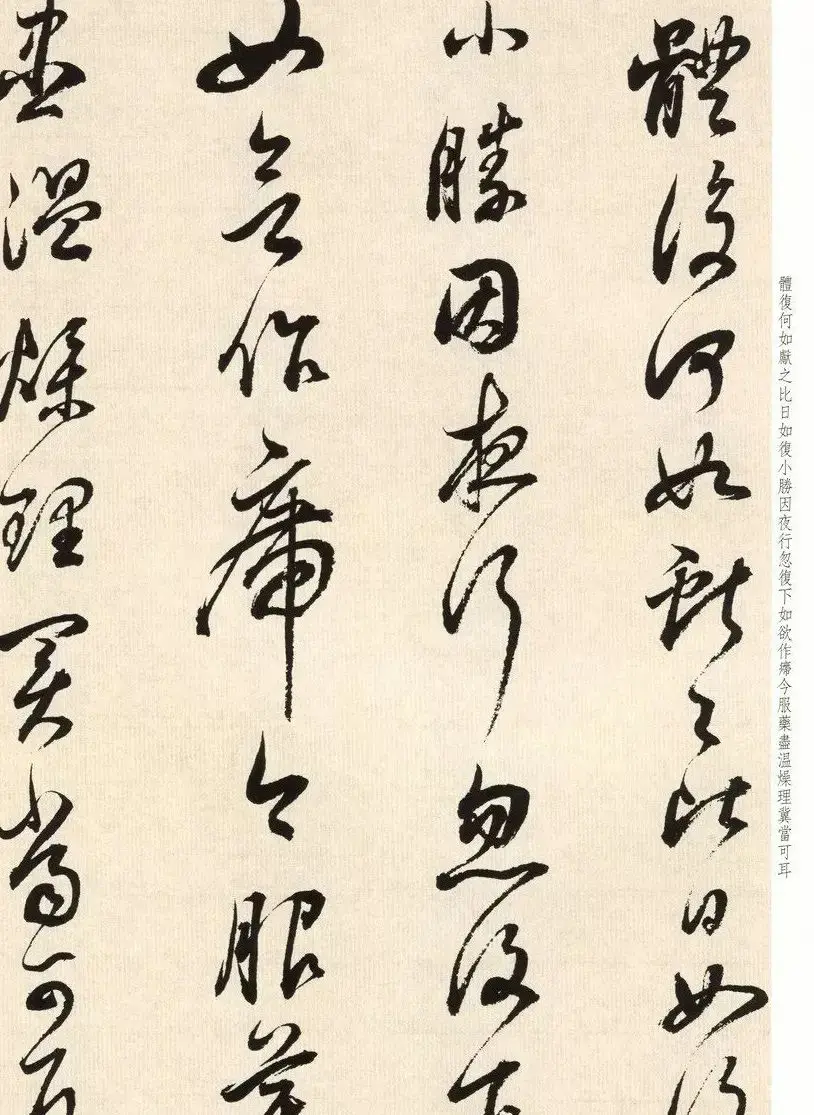 體復何如獻之比日如復小勝因夜行忽復下如欲作㿃今服藥盡溫燥理冀當可耳
體復何如獻之比日如復
小勝因夜行忽復下
如欲作㿃今服藥
盡溫燥理冀當可耳